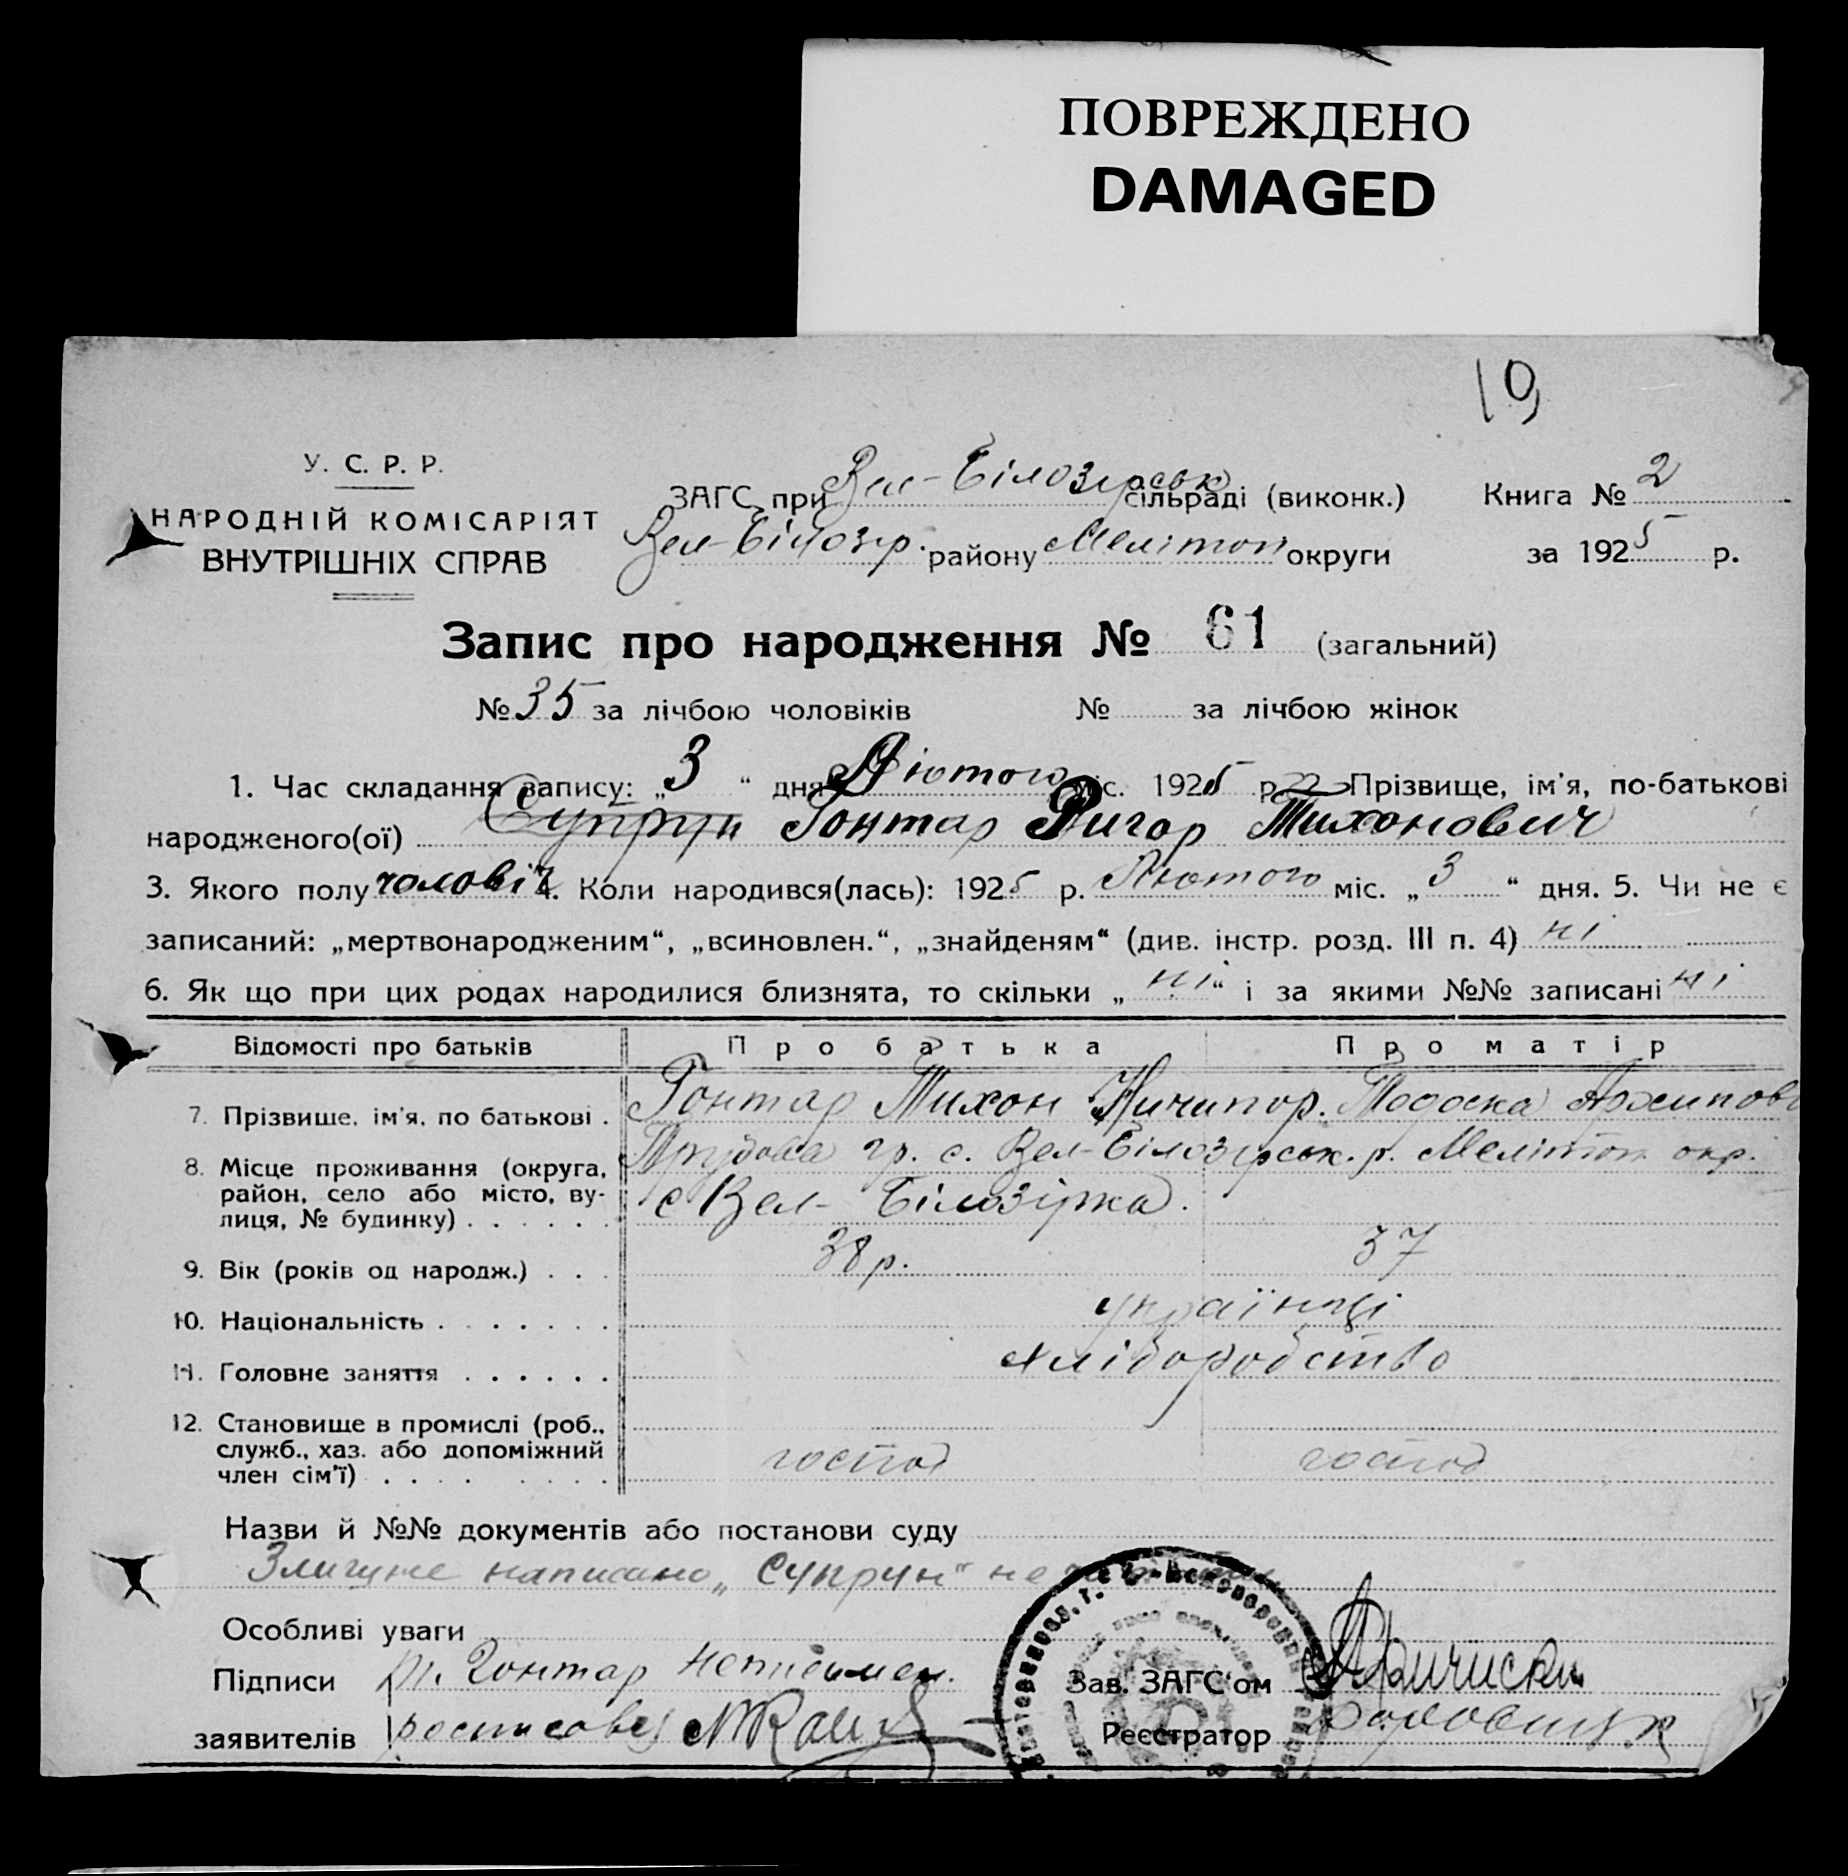 ПОВРЕЖДЕНО
DAMAGED
19
У. С. Р. Р.
НАРОДНІЙ КОМІСАРІЯТ
ВНУТРІШНІХ СПРАВ
ЗАГС при Вел-Білозірськ сільраді (виконк.) Книга № 2
Вел-Білозір. району Мелітоп округи за 1925 р.
Запис про народження № 61 (загальний)
№ 35 за лічбою чоловіків № за лічбою жінок
1. Час складання запису: „3“ дня Лютого міс. 1925 р. 2. Прізвище, ім'я, по-батькові
народженого(ої) Супрун Гонтар Ригор Тихонович
3. Якого полу чоловіч 4. Коли народився(лась): 1925 р. Лютого міс. „3“ дня. 5. Чи не є
записаний: „мертвонародженим“, „всиновлен.“, „знайденям“ (див. інстр. розд. III п. 4) ні
6. Як що при цих родах народилися близнята, то скільки „ні“ і за якими №№ записані ні
Відомості про батьків Про батька Про матір
7. Прізвище, ім'я, по батькові . Гонтар Тихон Ничипор. Тодоска Архипов
8. Місце проживання (округа, район, село або місто, вулиця, № будинку) . . . . . . гр. с. Вел-Білозірськ. р. Мелітоп окр.
с Вел- Білозірка.
9. Вік (років од народж.) . . . 38 р. 37
10. Національність . . . . . . . українці
11. Головне заняття . . . . . . хліборобство
12. Становище в промислі (роб.,
служб., хаз. або допоміжний
член сім'ї) . . . . . . . . . господ господ
Назви й №№ документів або постанови суду
написано „Супрун“ не
Особливі уваги
Підписи Гонтар неписьмен.
Зав. ЗАГС'ом
заявителів
Реєстратор